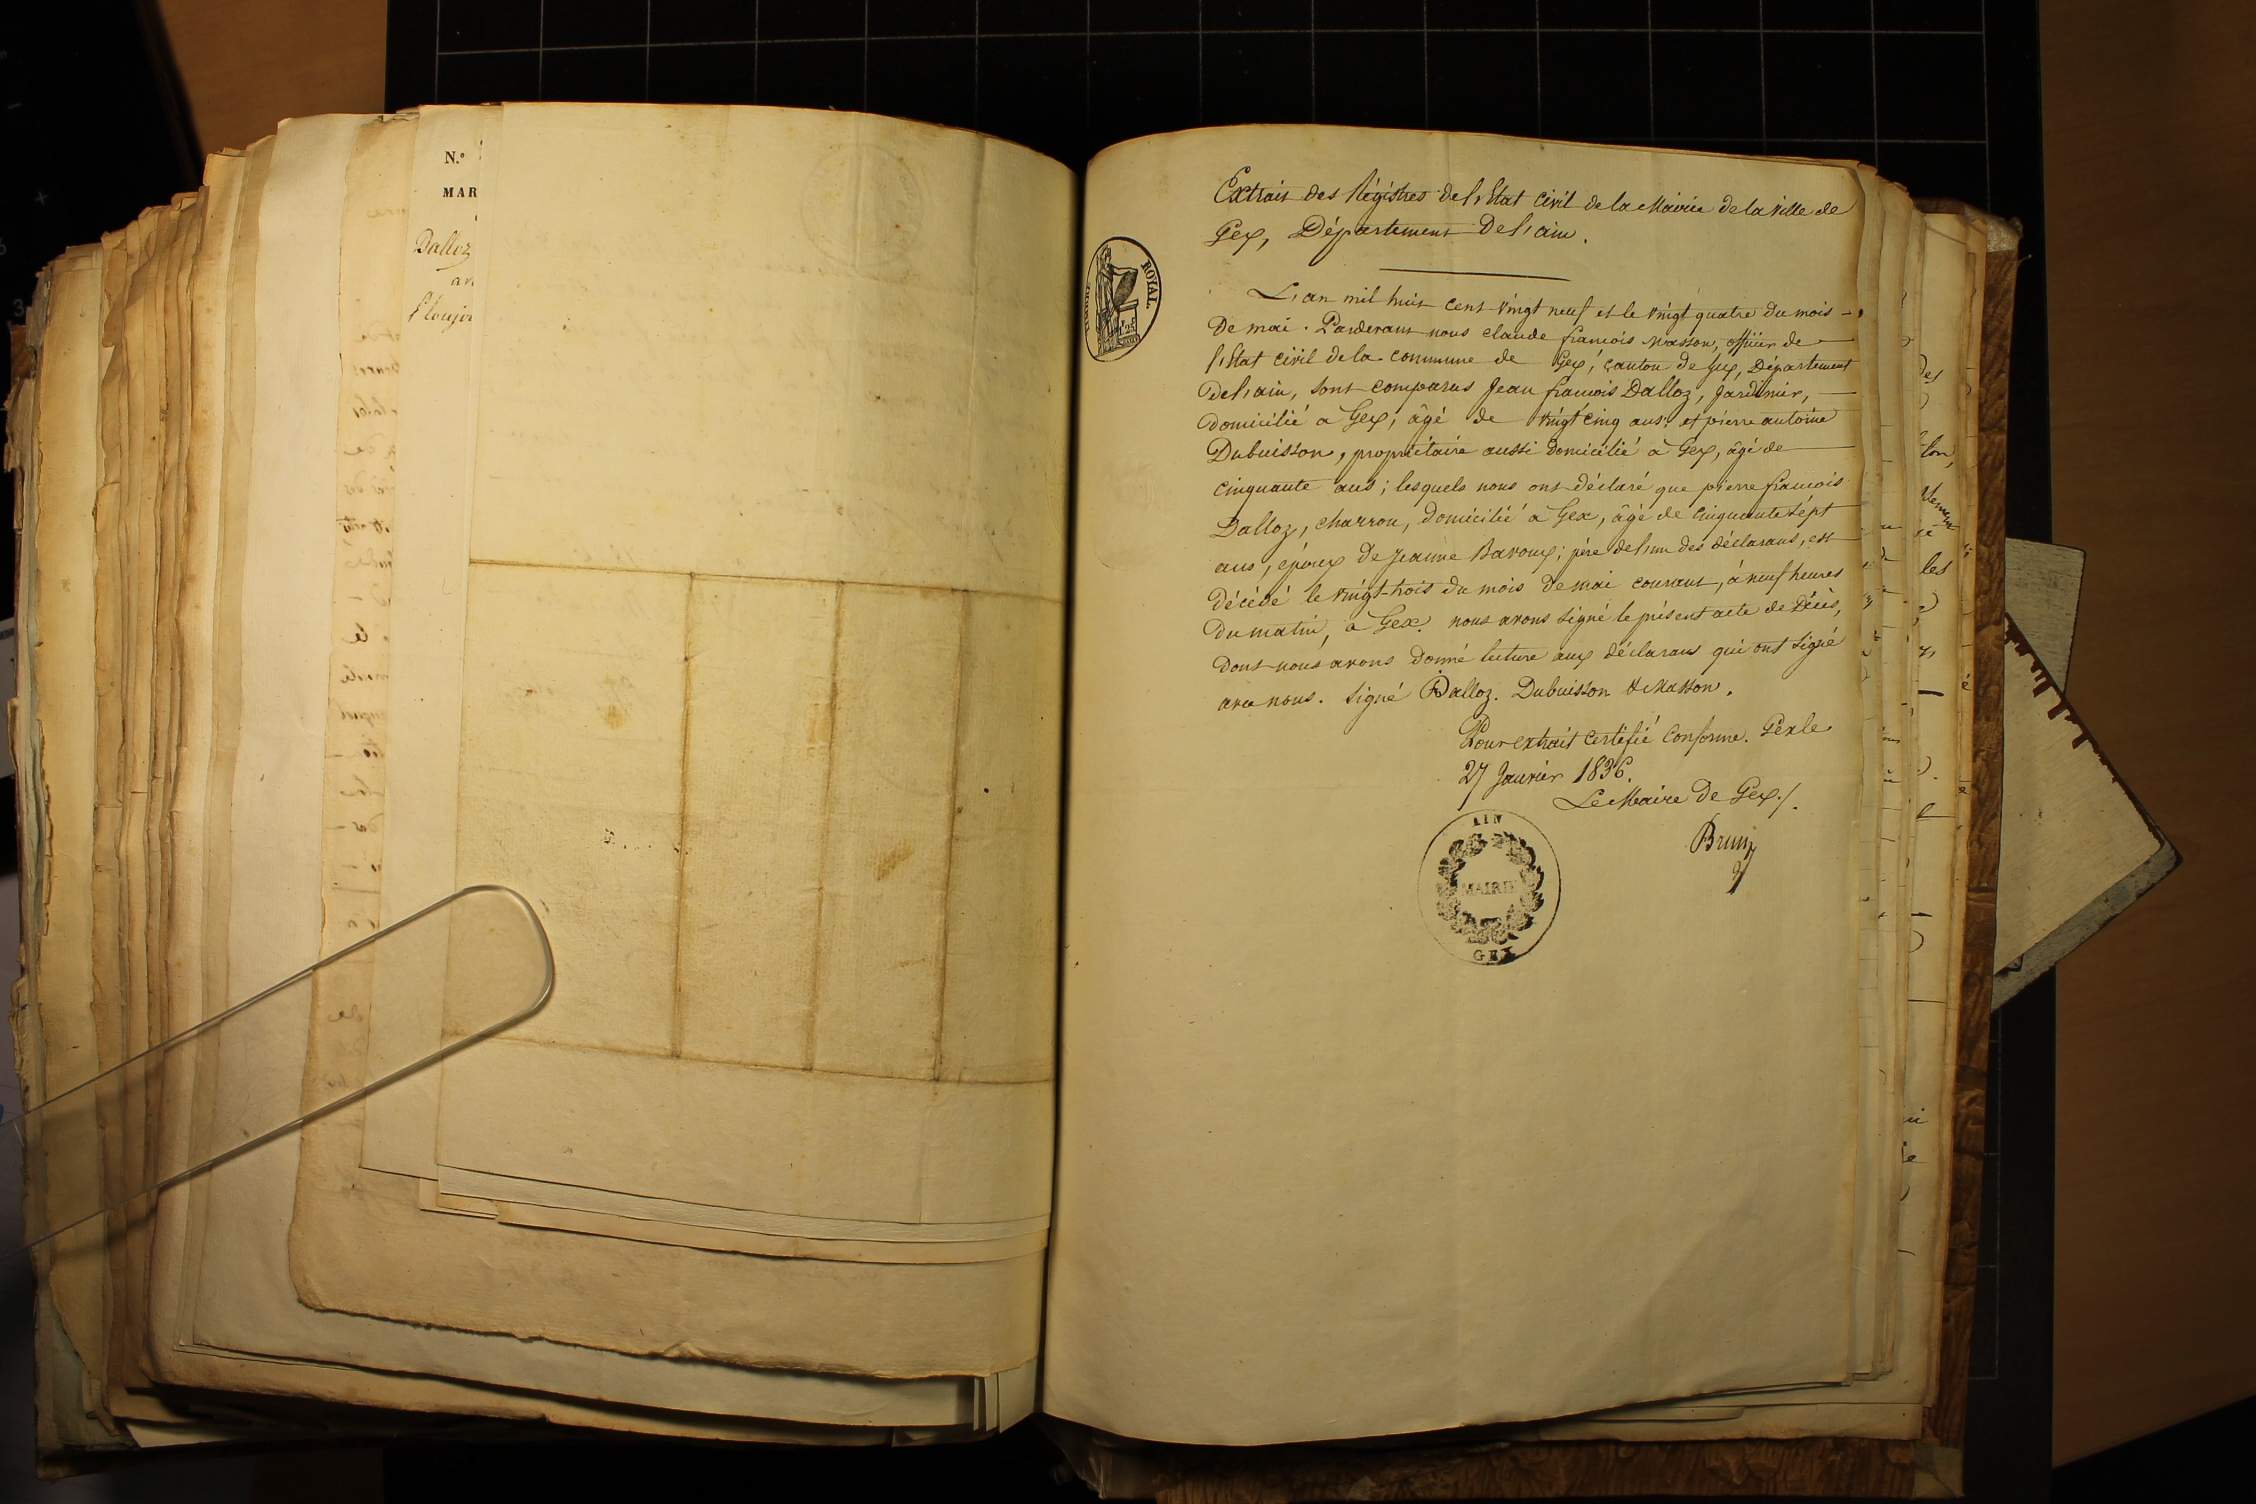 N.º
MAR
Dalloz
Extrait des Régistres de l'Etat civil de la Mairie de la Ville de
Gex, Département de l'ain.
L'an mil huit cent vingt neuf et le vingt quatre du mois
de mai. Pardevant nous claude francois Masson, officier de
l'Etat civil de la commune de Gex, canton de Gex, Département
de l'ain, sont comparus Jean francois Dalloz, Jardinier,
domicilié a Gex, âgé de vingt cinq ans, et pierre antoine
Dubuisson, propriétaire aussi domicilié à Gex, âgé de
cinquante ans; lesquels nous ont déclaré que pierre francois
Dalloz, charron, domicilié a Gex, âgé de cinquante sept
ans, époux de Jeanne Baroux; père de l'un des déclarans, est
décédé le vingt-trois du mois de mai courant, à neuf heures
du matin, a Gex. nous avons signé le présent acte de Décès,
dont nous avons donné lecture aux déclarans qui ont signé
avec nous. signé Dalloz. Dubuisson & Masson.
Pour extrait certifié conforme. Gex le
27 Janvier 1836.
Le Maire de Gex./.
ROYAL
AIN
MAIRIE
GEX